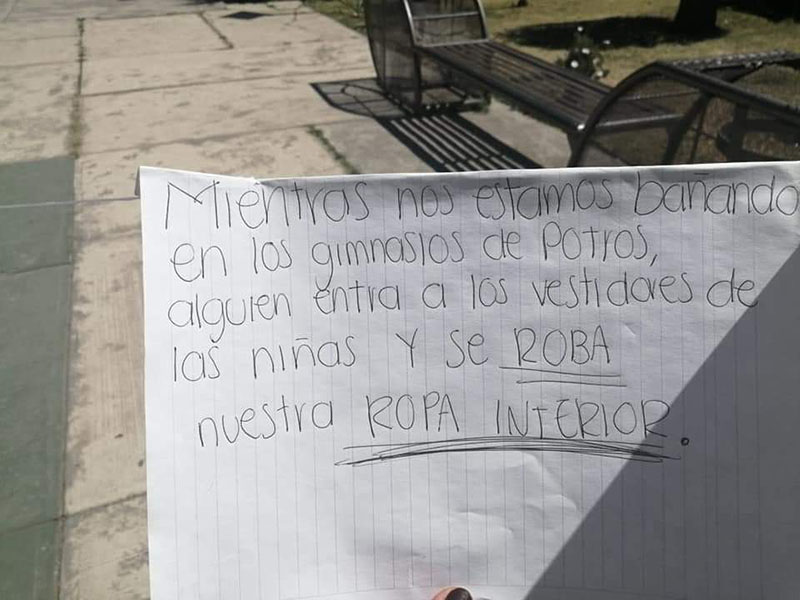 Mientras nos estamos bañando
en los gimnasios de Potros,
alguien entra a los vestidores de
las niñas y se ROBA
nuestra ROPA INTERIOR.